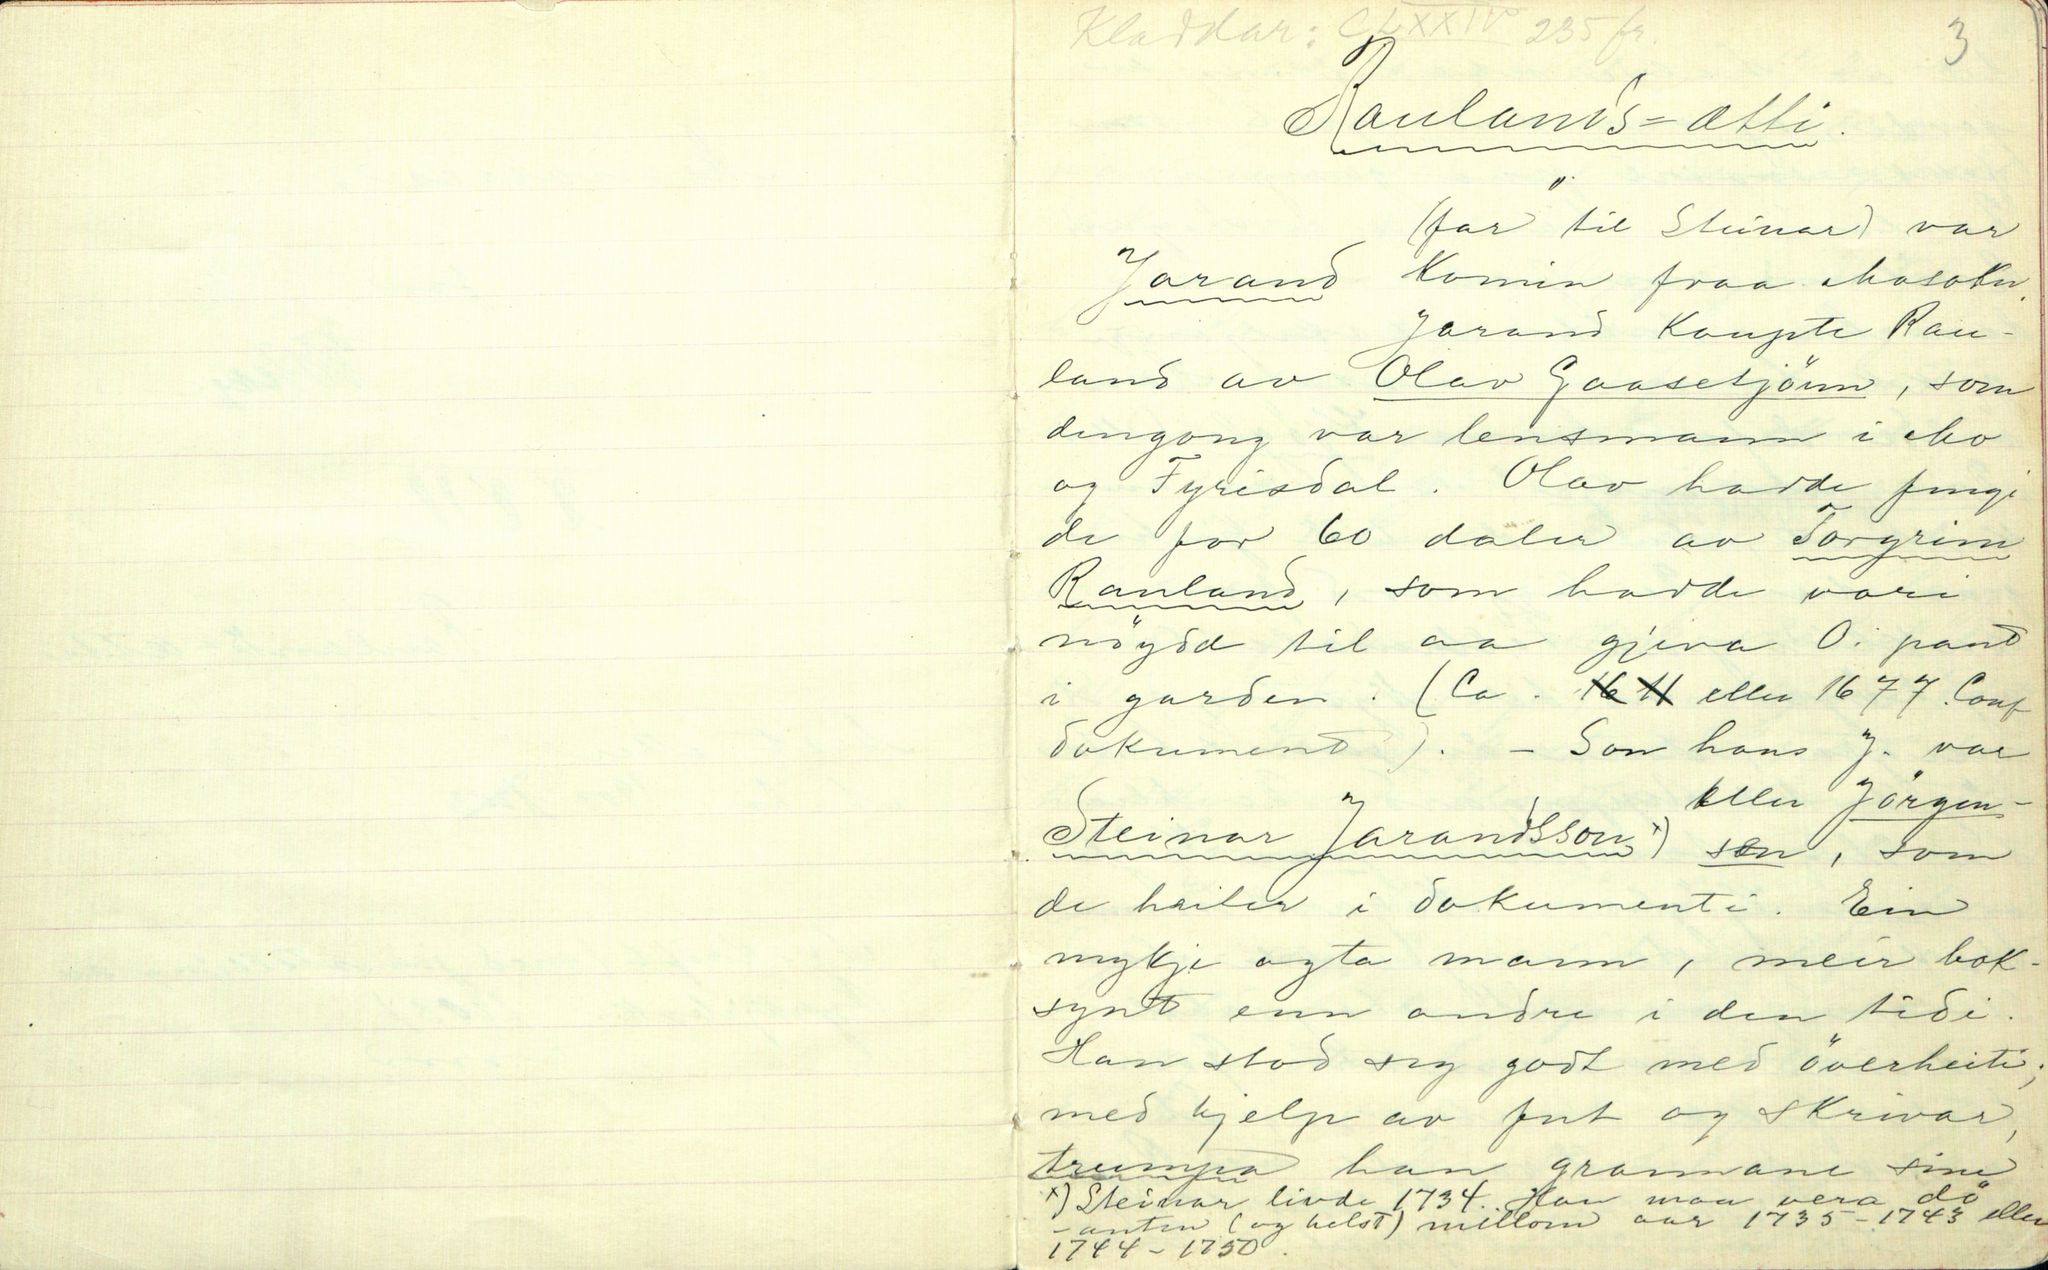 Kladdar: CLXXIV 235 fr.
3
Raulands-ætti.
(far til Steinar) var
Jarand komin fraa Mosokn.
Jarand kaupte Rau-
land av Olav Gaasetjönn, som
dengong var lensmann i Mo
og Fyrisdal. Olav hadde fengi
de for 60 daler av Torgrim
Rauland, som hadde vori
nöydd til aa gjeva O. pant
i garden. (Ca. 1611 eller 1677. Conf
dokument). - Son hans J. var
eller Jörgen-
Steinar Jarandsson x) sen, som
de heiter i dokumenti. Ein
mykje agta mann, meir bok-
synt enn andre i den tidi.
Han stod seg godt med överheiti;
med hjelp av fut og skrivar,
trumpa han grannane sine
x) Steinar livde 1734. Han maa vera dö
- anten (og helst) millom aar 1735-1743 eller
1744-1750.